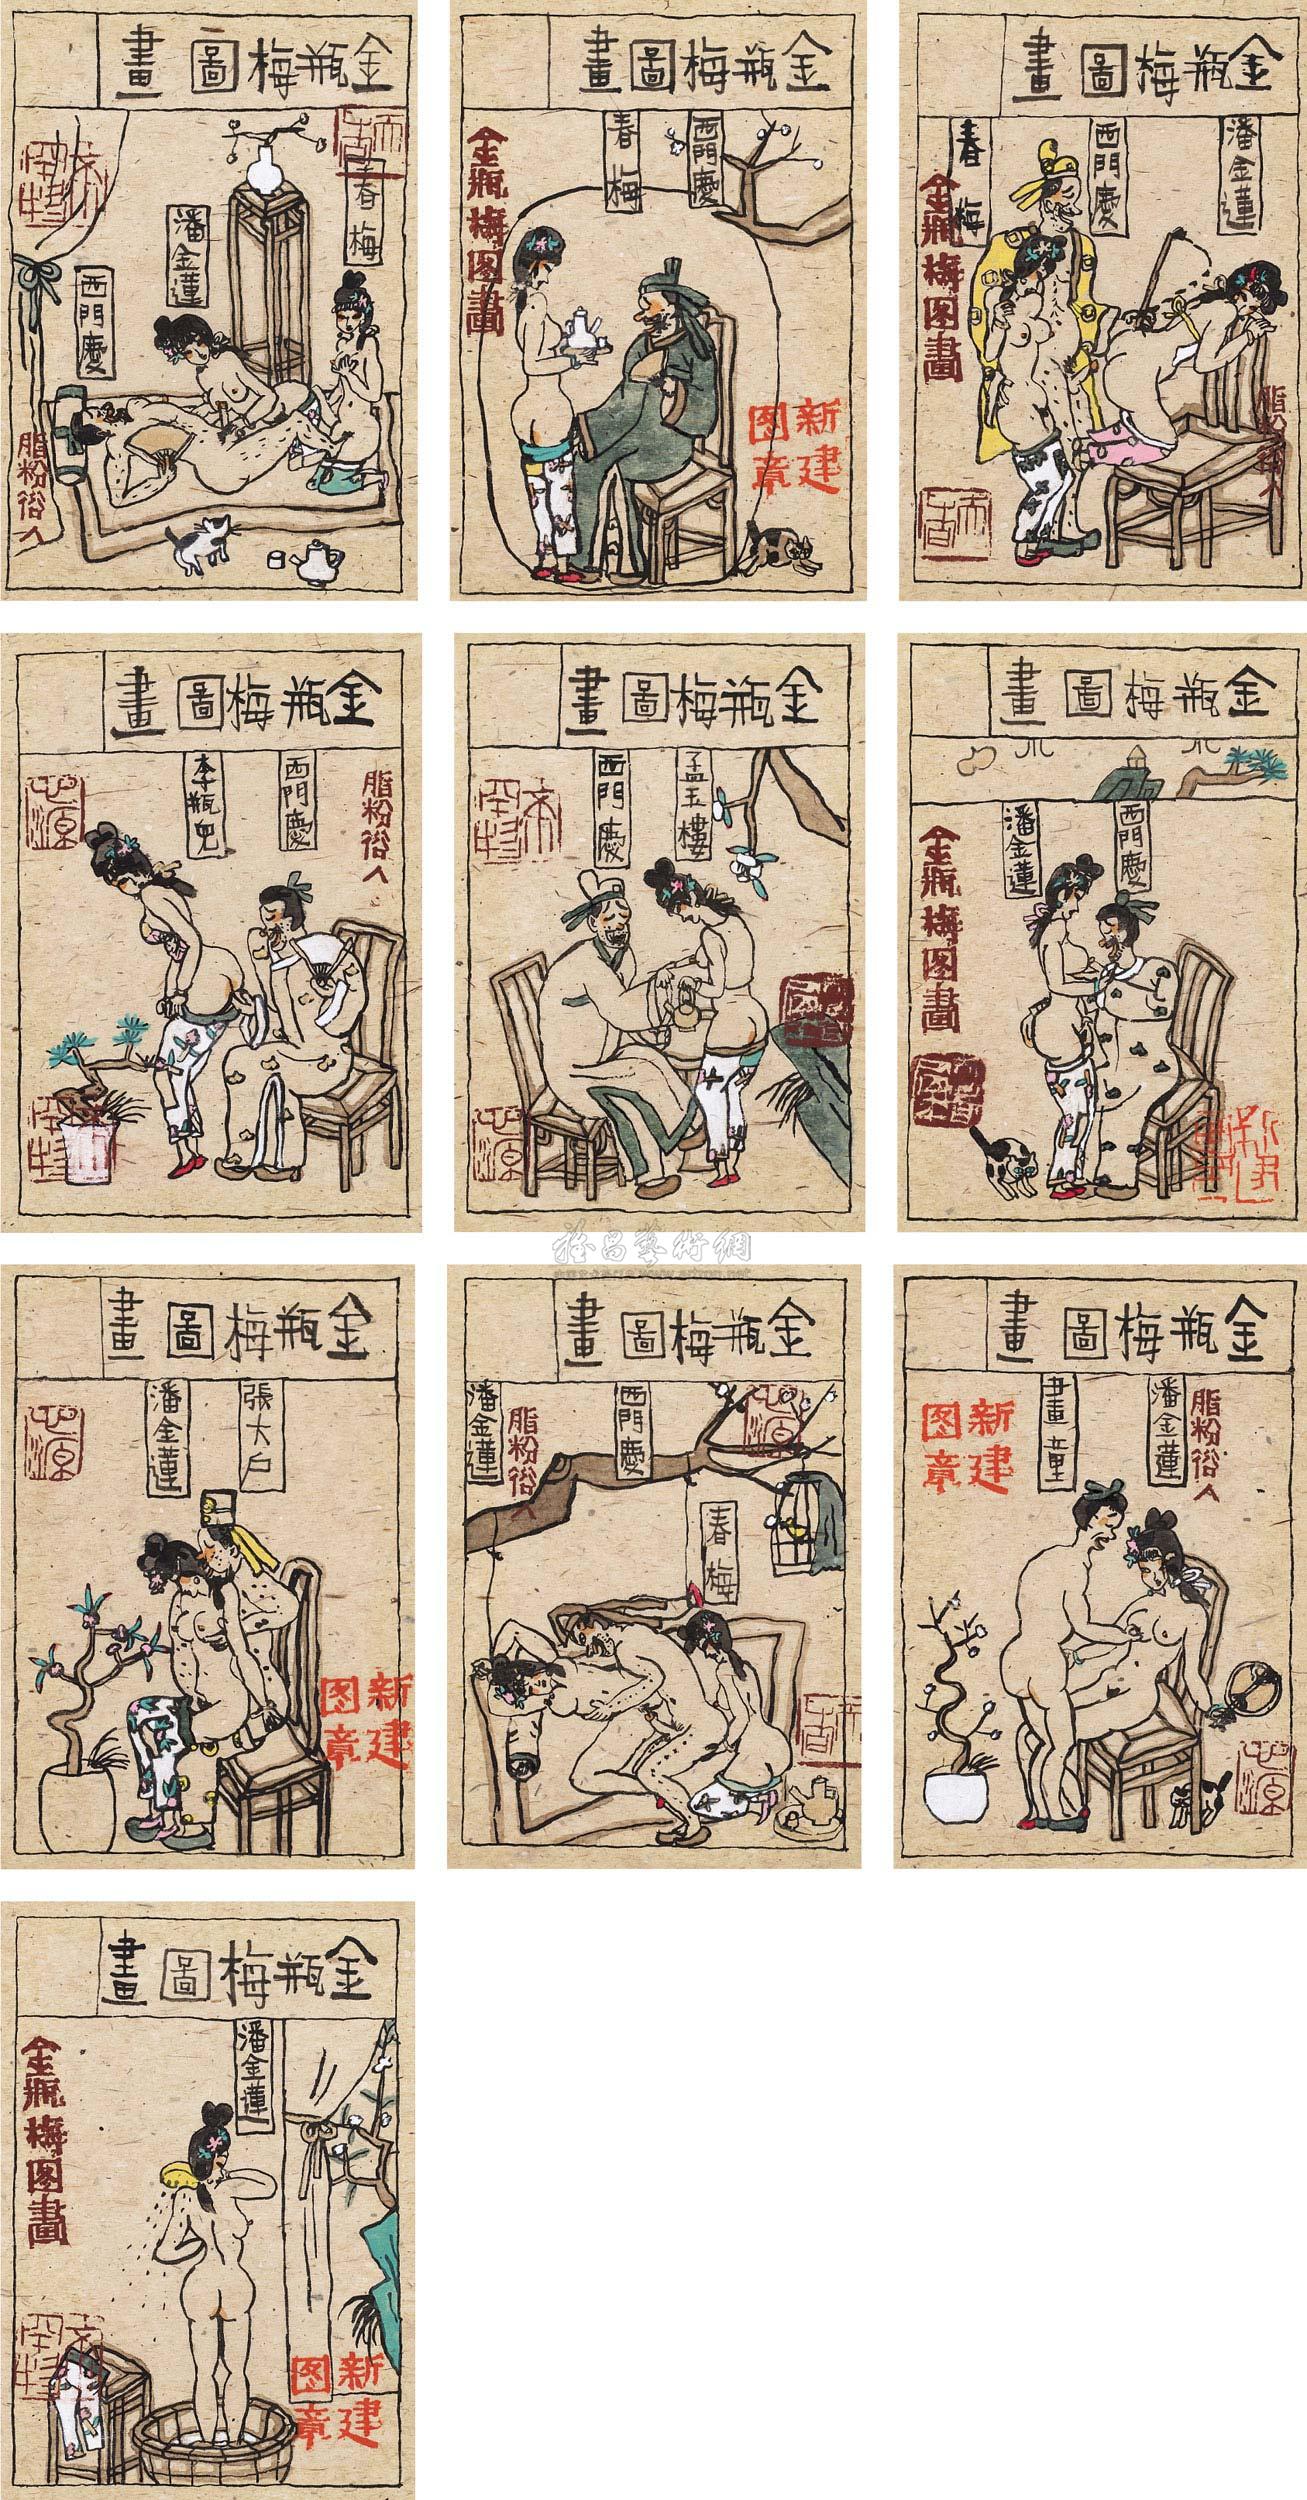 金瓶梅圖畫
春梅
潘金蓮
西門慶
脂粉俗人
金瓶梅圖畫
西門慶
春梅
金瓶梅图畫
新建
图章
金瓶梅圖畫
潘金蓮
西門慶
春梅
金瓶梅图畫
脂粉俗人
金瓶梅圖畫
西門慶
李瓶兒
脂粉俗人
金瓶梅圖畫
孟玉樓
西門慶
金瓶梅圖畫
西門慶
潘金蓮
金瓶梅图畫
金瓶梅圖畫
張大戶
潘金蓮
新建
图章
金瓶梅圖畫
西門慶
潘金蓮
脂粉俗人
春梅
金瓶梅圖畫
潘金蓮
畫童
脂粉俗人
新建
图章
金瓶梅圖畫
潘金蓮
金瓶梅图畫
新建
图章